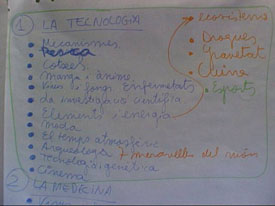 1 LA TECNOLOGIA
Mecanismes
Coets
Manga i anime
Virus i fongs Enfermetats
de investigació científica
Elements i energia
Moda
El temps atmosfèric
Arqueologia + meravelles del món
Tecnologia i genètica
Cinema
2 LA MEDICINA
ecosistema
Drogues
Gravetat
Cuina
Esports